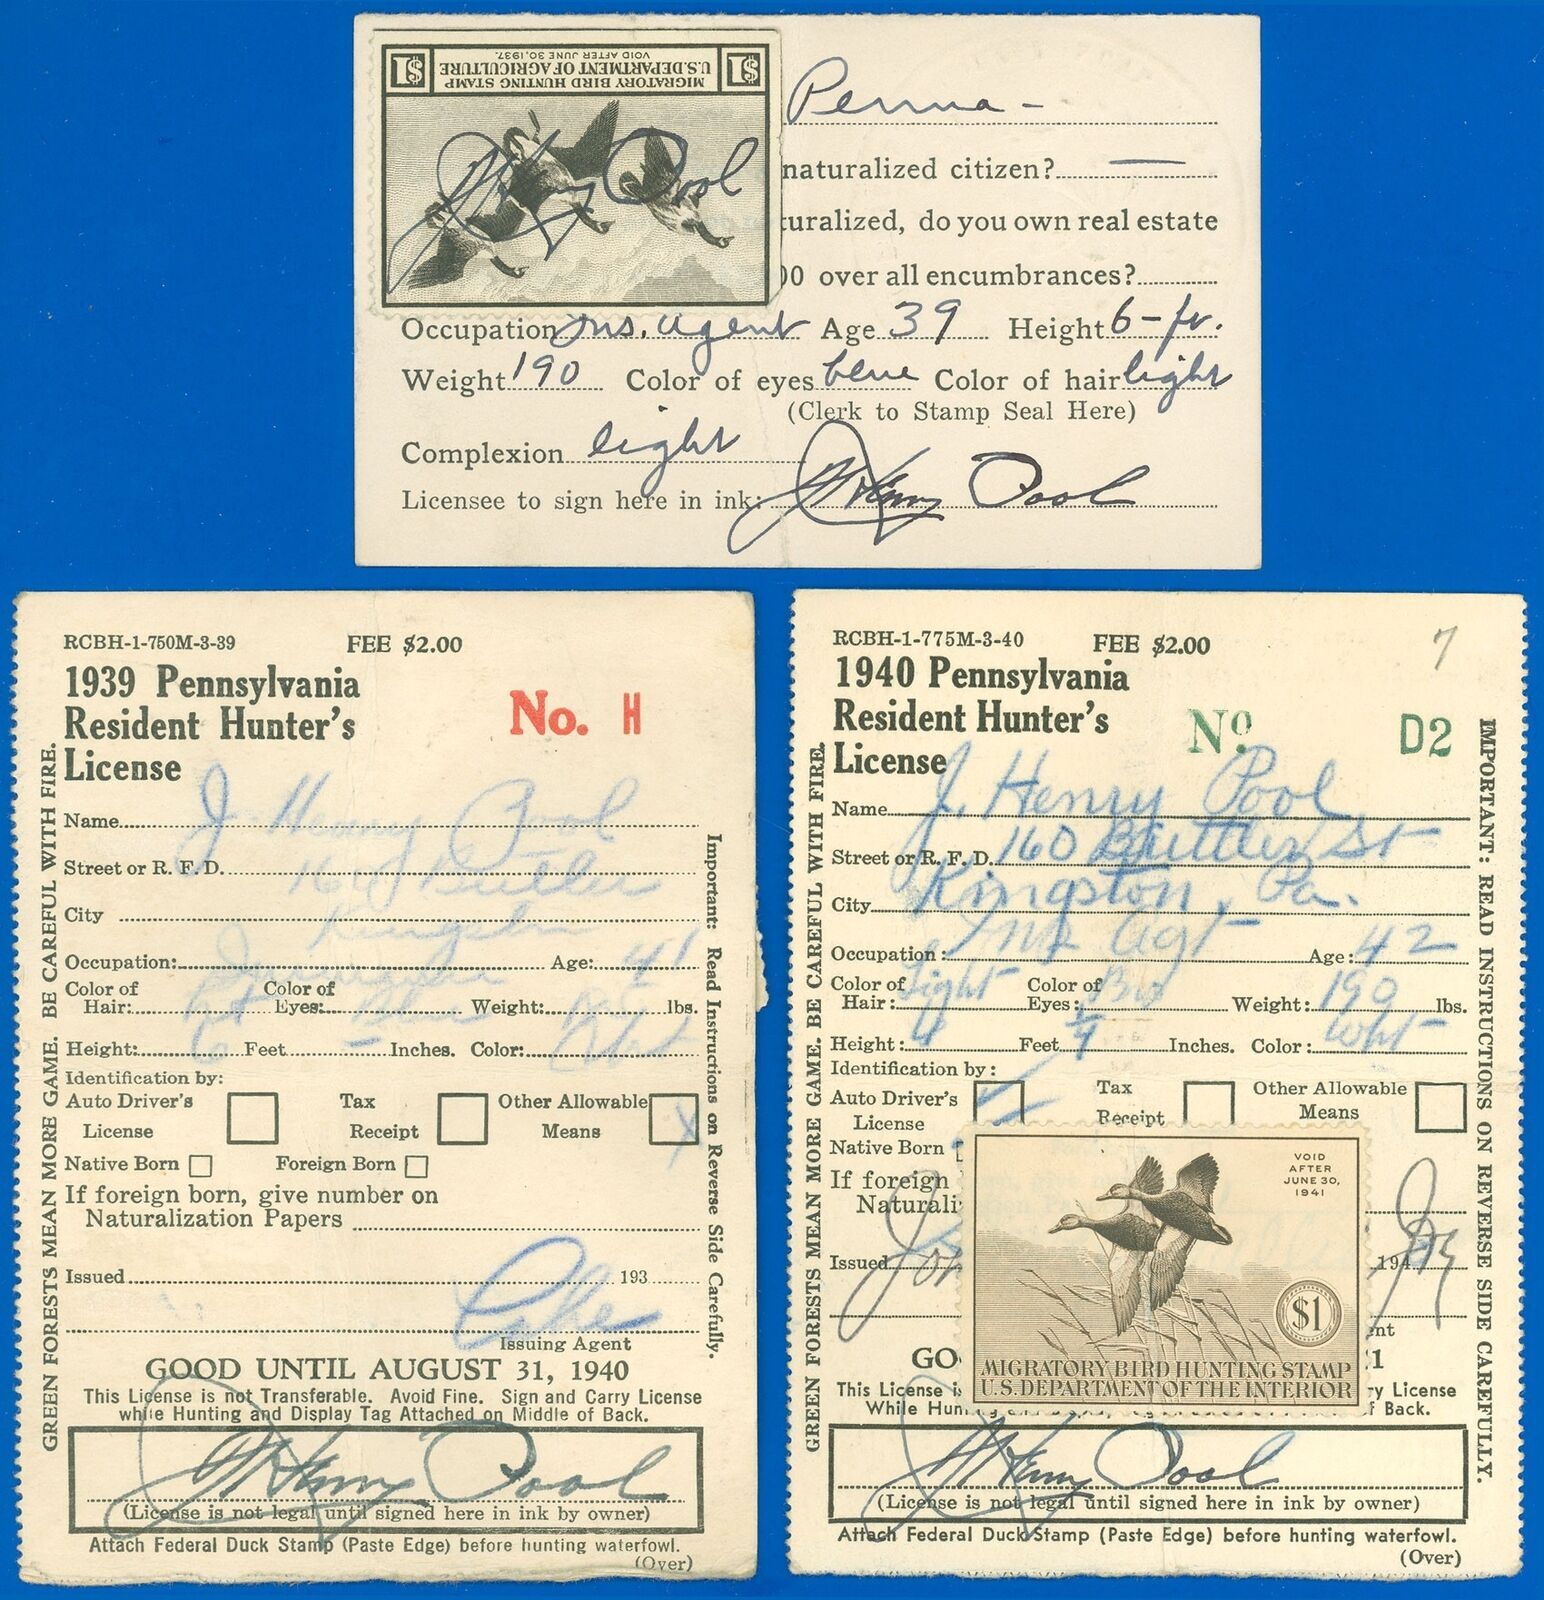 $1 MIGRATORY BIRD HUNTING STAMP $1
U.S. DEPARTMENT OF AGRICULTURE
VOID AFTER JUNE 30, 1937.
J Henry Pool
Penna -
naturalized citizen? —
uralized, do you own real estate
00 over all encumbrances?
Occupation Ins. Agent Age 39 Height 6-ft.
Weight 190 Color of eyes blue Color of hair light
(Clerk to Stamp Seal Here)
Complexion light
Licensee to sign here in ink: J Henry Pool
RCBH-1-750M-3-39 FEE $2.00
1939 Pennsylvania
Resident Hunter's
License
No. H
Name J. Henry Pool
Street or R. F. D. 160 Butler
City Kingston
Occupation: Age: 41
Color of Hair: Color of Eyes: Blue Weight: lbs.
Height: 6 Feet – Inches. Color:
Identification by:
Auto Driver's License Tax Receipt Other Allowable Means X
Native Born Foreign Born
If foreign born, give number on
Naturalization Papers
Issued 193
Issuing Agent
GOOD UNTIL AUGUST 31, 1940
This License is not Transferable. Avoid Fine. Sign and Carry License
while Hunting and Display Tag Attached on Middle of Back.
J Henry Pool
(License is not legal until signed here in ink by owner)
Attach Federal Duck Stamp (Paste Edge) before hunting waterfowl.
(Over)
GREEN FORESTS MEAN MORE GAME. BE CAREFUL WITH FIRE.
Important: Read Instructions on Reverse Side Carefully.
RCBH-1-775M-3-40 FEE $2.00
7
1940 Pennsylvania
Resident Hunter's
License
No. D2
Name J. Henry Pool
Street or R. F. D. 160 Buttler St
City Kingston, Pa.
Occupation: Ins Agt Age: 42
Color of Hair: Light Color of Eyes: Weight: 190 lbs.
Height: Feet Inches. Color: Wht
Identification by:
Auto Driver's License Tax Receipt Other Allowable Means
Native Born
If foreign
Naturali
Issued 194
nt
GO 1
This License i ry License
While Hun f Back.
VOID
AFTER
JUNE 30,
1941
$1
MIGRATORY BIRD HUNTING STAMP
U.S. DEPARTMENT OF THE INTERIOR
J Henry Pool
(License is not legal until signed here in ink by owner)
Attach Federal Duck Stamp (Paste Edge) before hunting waterfowl.
(Over)
GREEN FORESTS MEAN MORE GAME. BE CAREFUL WITH FIRE.
IMPORTANT: READ INSTRUCTIONS ON REVERSE SIDE CAREFULLY.